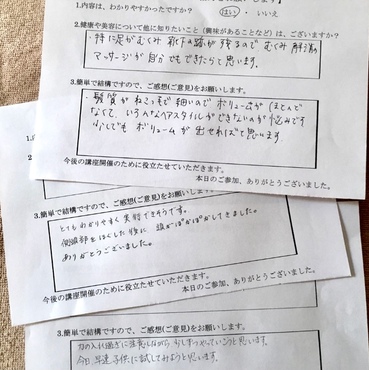 1.内容は、わかりやすかったですか？ はい ・ いいえ
2.健康や美容について他に知りたいこと(興味があることなど)は、ございますか？
・特に足がむくみ 靴下の跡が残るので むくみ解消の
マッサージが自分でもできたらって思います。
3.簡単で結構ですので、ご感想(ご意見)をお願いします。
・髪質がねこっ毛で細いのでボリュームがほとんど
なくて、いろんなヘアスタイルができないのが悩みです
少しでも ボリュームが 出せればって思います
今後の講座開催のために役立たせていただきます。
本日のご参加、ありがとうございました。
3.簡単で結構ですので、ご感想(ご意見)をお願いします。
とてもわかりやすく実行できそうです。
側頭部をほぐした後に 頭がぽかぽかしてきました。
ありがとうございました。
今後の講座開催のために役立たせていただきます。
本日のご参加、ありがとうございました。
3.簡単で結構ですので、ご感想(ご意見)をお願いします。
力の入れ過ぎに注意しながら 少しずつやっていこうと思います。
今日、早速 子供に試してみようと思います。